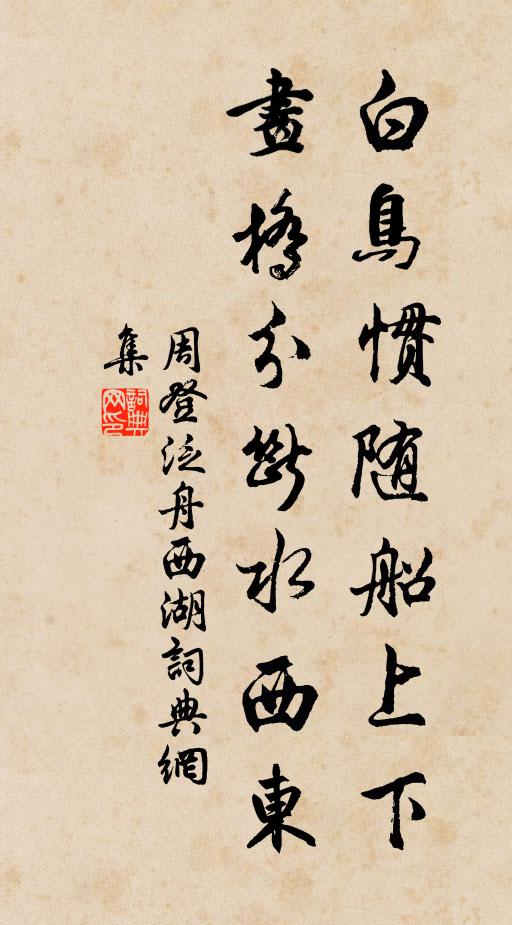 白鳥慣随船上下
畫橋分斷水西東
周登泛舟西湖詞典網
集
詞典网印